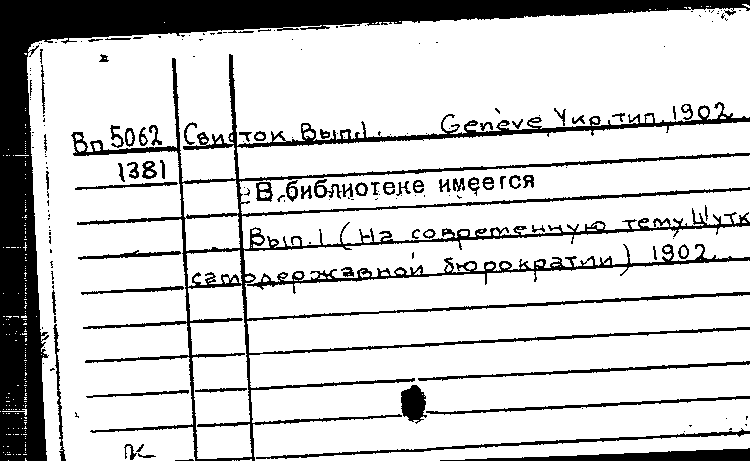 Вп 5062 Свисток. Вып. 1. Genève, Укр. тип., 1902.
1381
В библиотеке имеется
Вып. 1 (На современную тему. Шутк
самодержавной бюрократии) 1902.
К